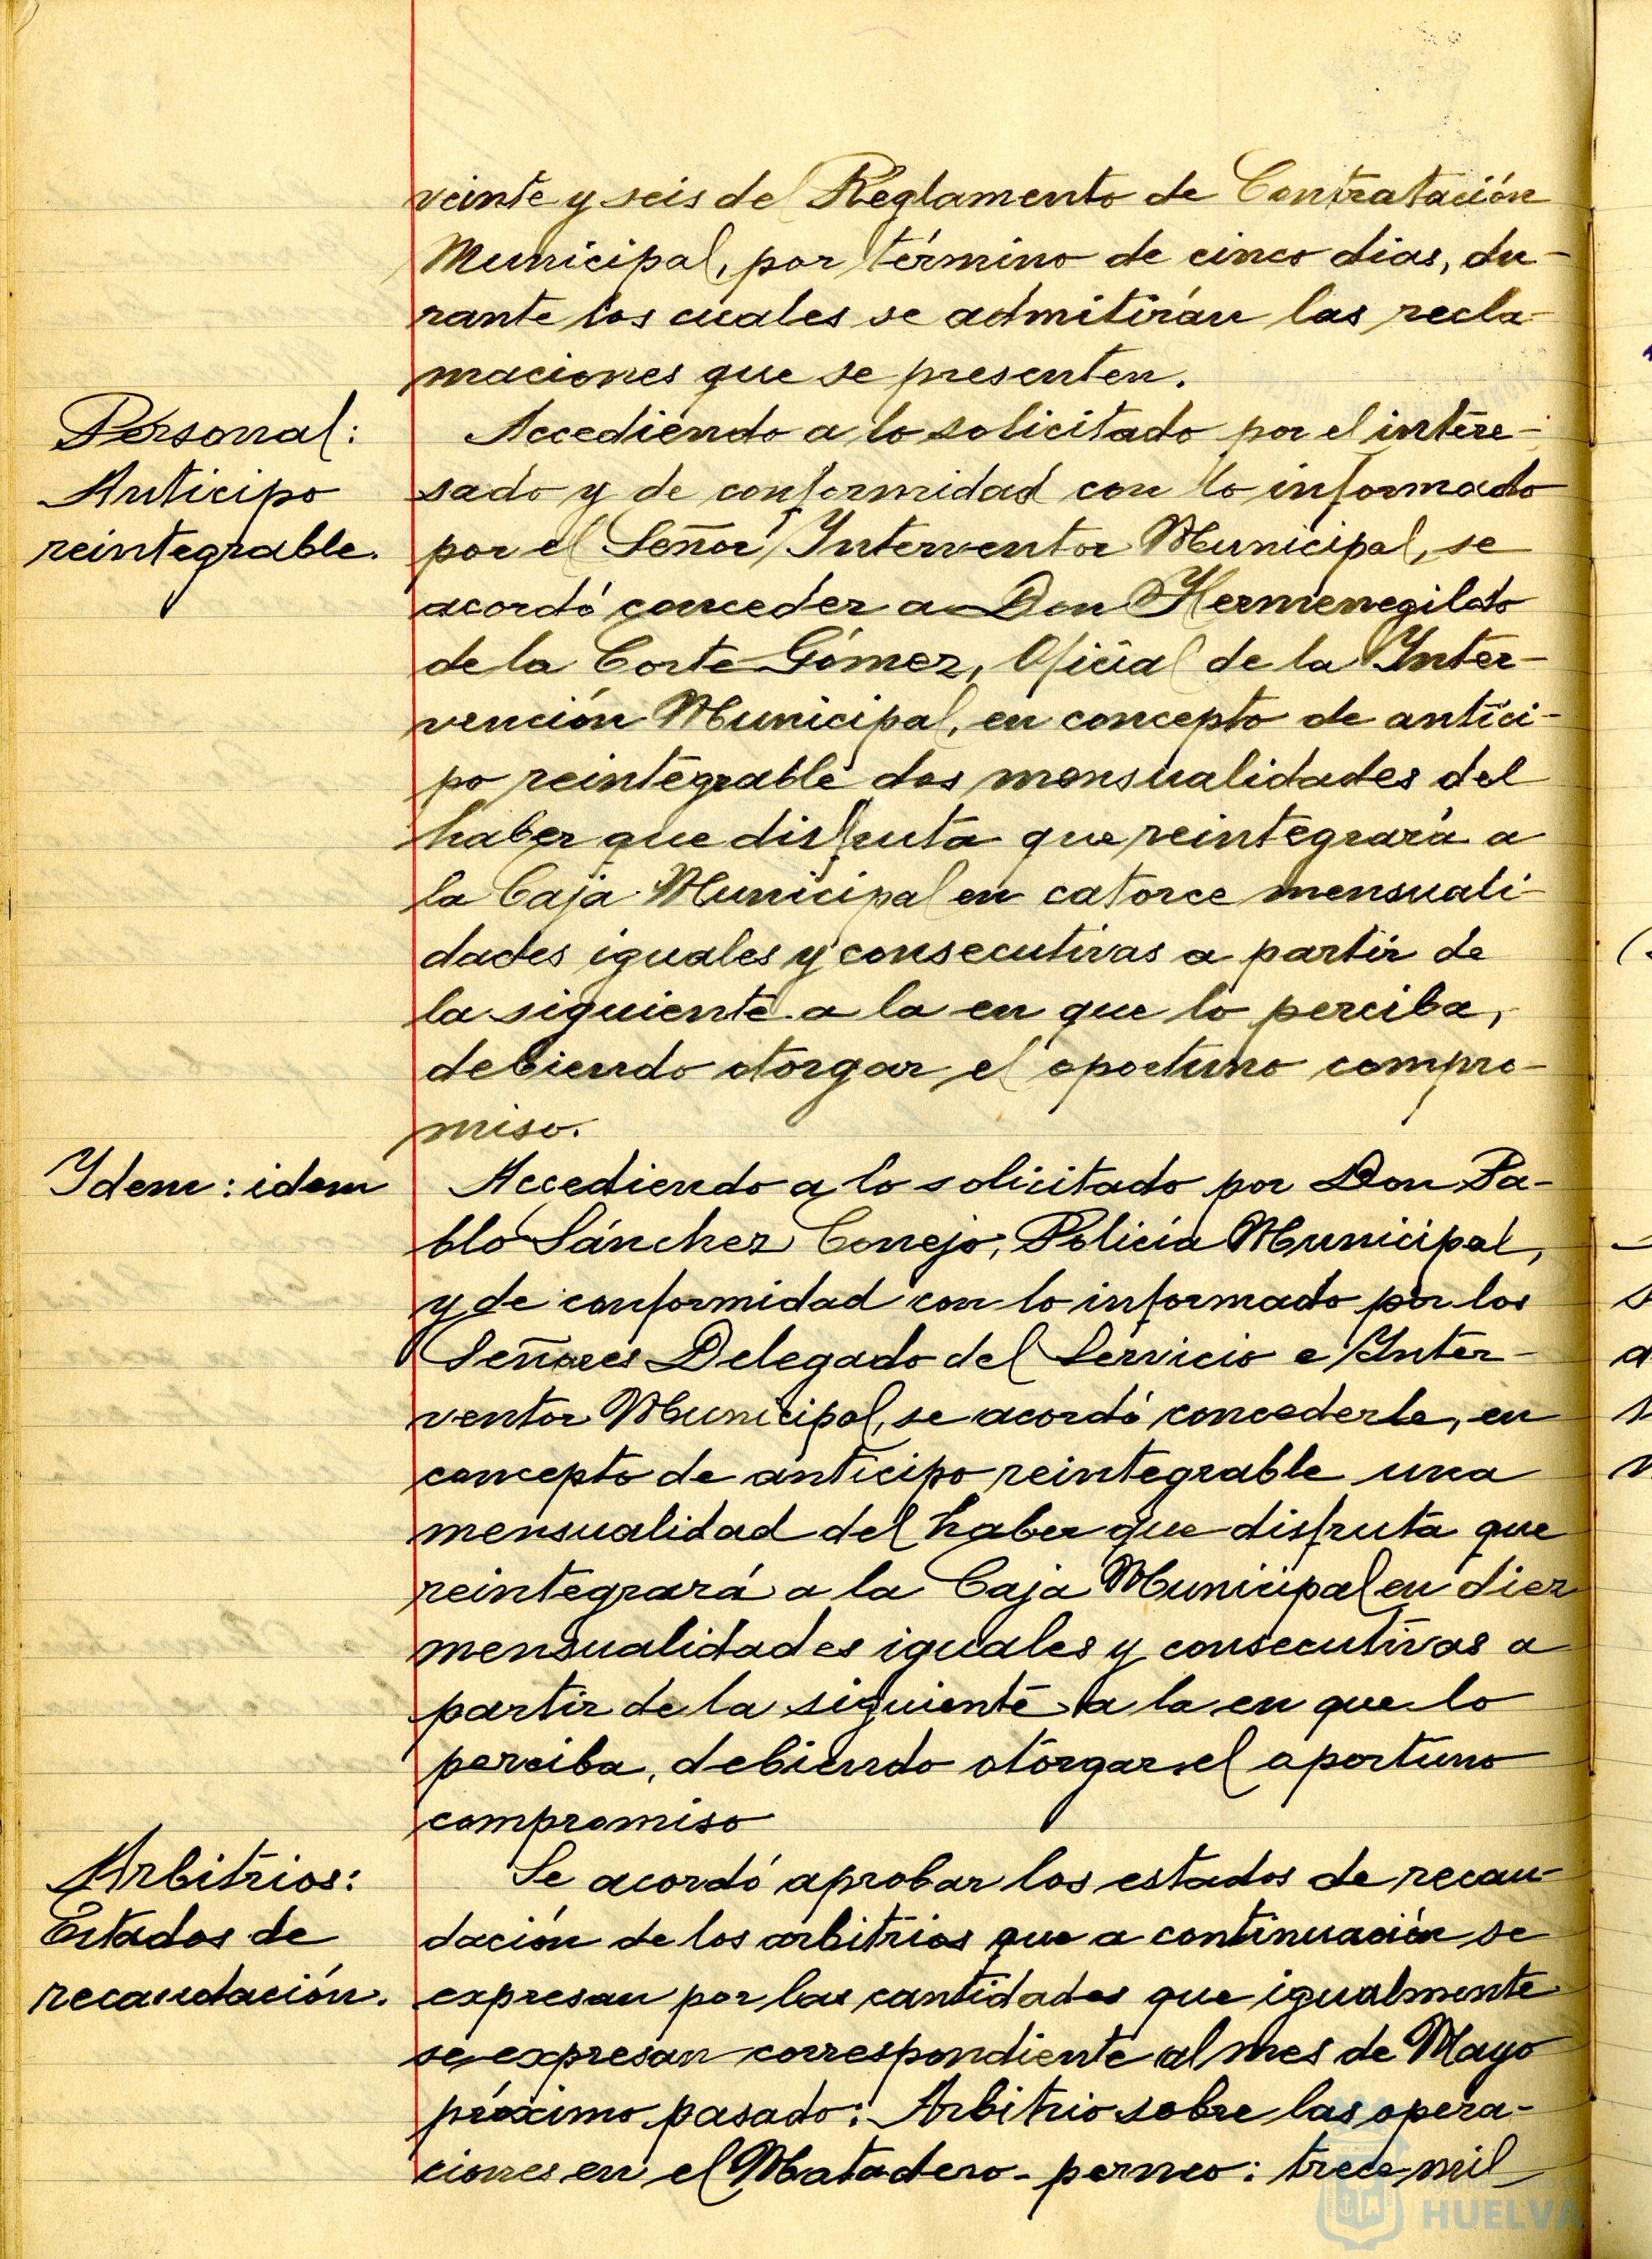 veinte y seis del Reglamento de Contratación
Municipal, por término de cinco dias, du-
rante los cuales se admitirán las recla-
maciones que se presenten.
Personal:
Anticipo
reintegrable.
Accediendo a lo solicitado por el intere-
sado y de conformidad con lo informado
por el Señor Interventor Municipal, se
acordó conceder a Don Hermenegildo
de la Corte Gómez, Oficial de la Inter-
vención Municipal, en concepto de antici-
po reintegrable dos mensualidades del
haber que disfruta que reintegrará a
la Caja Municipal en catorce mensuali-
dades iguales y consecutivas a partir de
la siguiente a la en que lo perciba,
debiendo otorgar el oportuno compro-
miso.
Ydem: idem
Accediendo a lo solicitado por Don Pa-
blo Sánchez Conejo, Policía Municipal,
y de conformidad con lo informado por los
Señores Delegado del Servicio e Inter-
ventor Municipal, se acordó concederle, en
concepto de anticipo reintegrable una
mensualidad del haber que disfruta que
reintegrará a la Caja Municipal en diez
mensualidades iguales y consecutivas a
partir de la siguiente a la en que lo
perciba, debiendo otorgar el oportuno
compromiso
Arbitrios:
Estados de
recaudación.
Se acordó aprobar los estados de recau-
dación de los arbitrios que a continuación se
expresan por las cantidades que igualmente
se expresan correspondiente al mes de Mayo
próximo pasado: Arbitrio sobre las opera-
ciones en el Matadero - perneo: trece mil
Ayuntamiento de
HUELVA